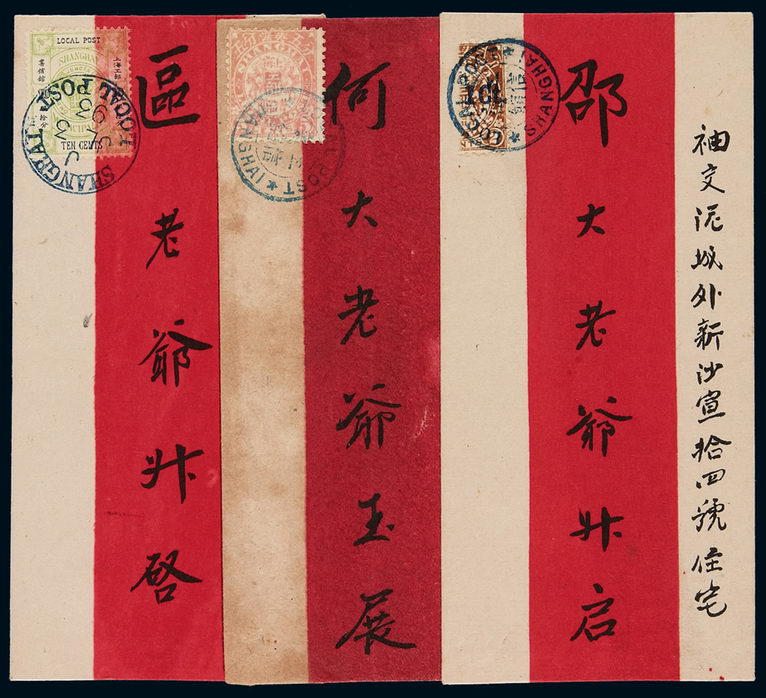 LOCAL POST
SHANGHAI
書信館
上海工部
TEN CENTS
SHANGHAI LOCAL POST
區老爺升啓
SHANGHAI
何大老爺玉展
SHANGHAI
LOCAL POST
邵大老爺升启
袖交泥城外新沙宣拾四號住宅